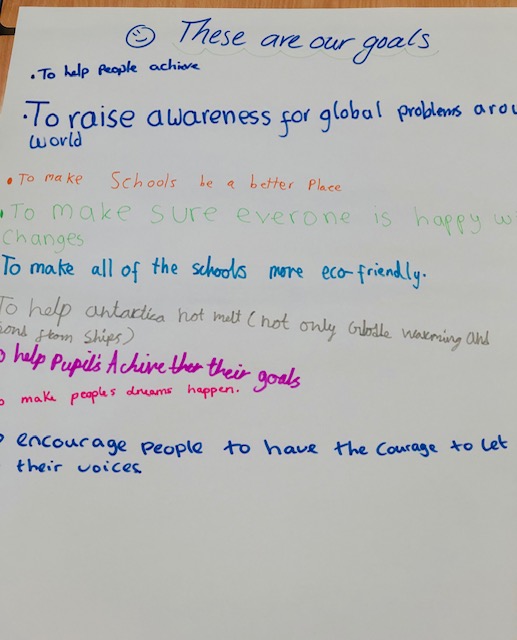 These are our goals
• To help people achieve
• To raise awareness for global problems arou
world
• To make Schools be a better Place
• To make sure everone is happy w
changes
To make all of the schools more eco-friendly.
To help antartica not melt (not only Globle warming and
from Ships)
help Pupil's Achive ther their goals
make peoples dreams happen.
encourage people to have the courage to let
their voices